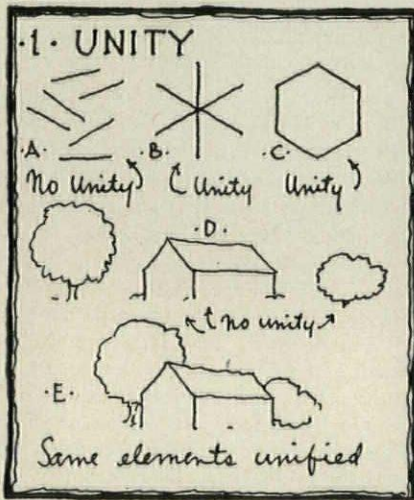 ·1· UNITY
·A· ·B· ·C·
No Unity Unity Unity
·D·
no unity
·E·
Same elements unified